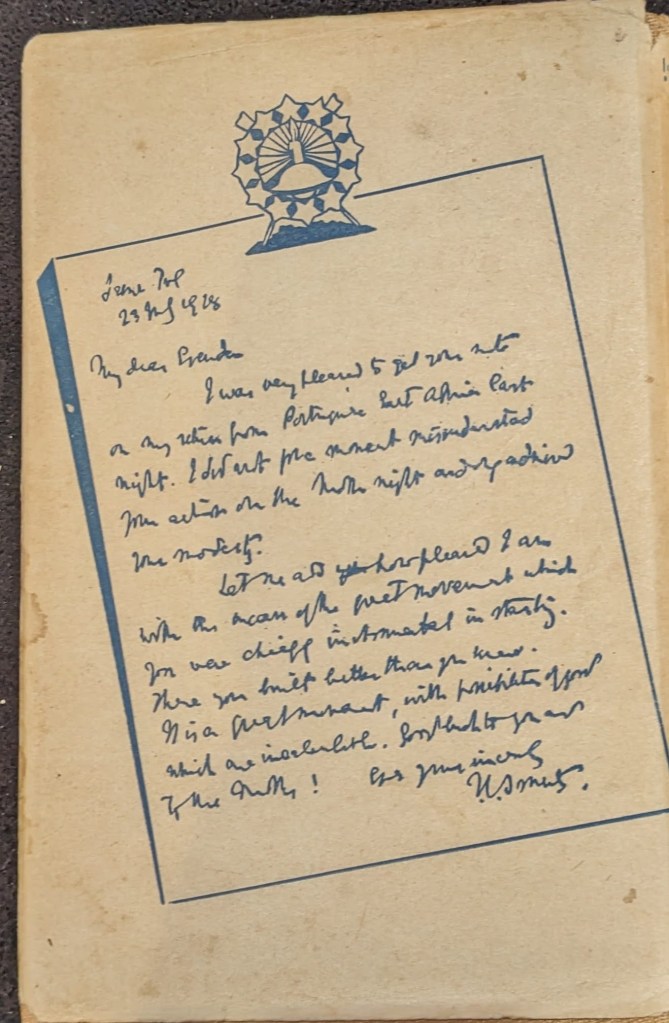 Irene Tvl
23 1928
My dear Evenden
I was very pleased to get your note
on my return from Portuguese East Africa last
night. I did not for a moment misunderstand
your action on the Moth night and only admired
your modesty.
Let me add how pleased I am
with the success of the great movement which
you were chiefly instrumental in starting.
There you built better than you knew.
It is a great movement, with possibilities of good
which are incalculable. Good luck to you and
to the Moths! Ever yours sincerely
J.C. Smuts.